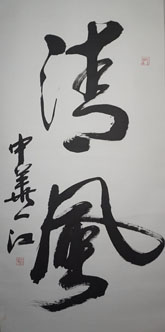 清風
中華一江